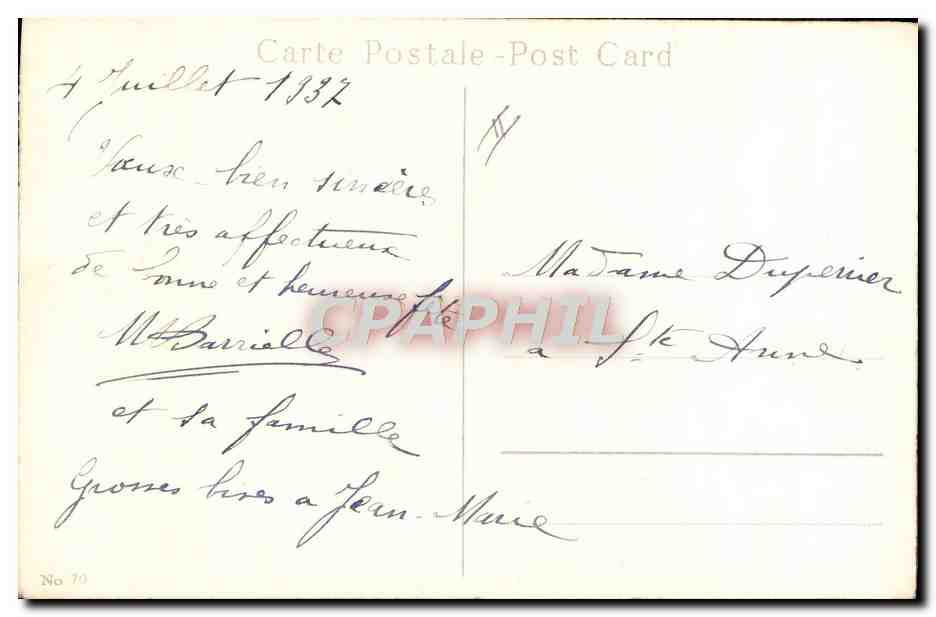 Carte Postale - Post Card
4 Juillet 1937
Vœux bien sincères
et très affectueux
de bonne et heureuse fête
Barrielle
et sa famille
Grosses bises a Jean-Marie
Madame Duperrier
a Ste Anne
CPAPHIL
No 70